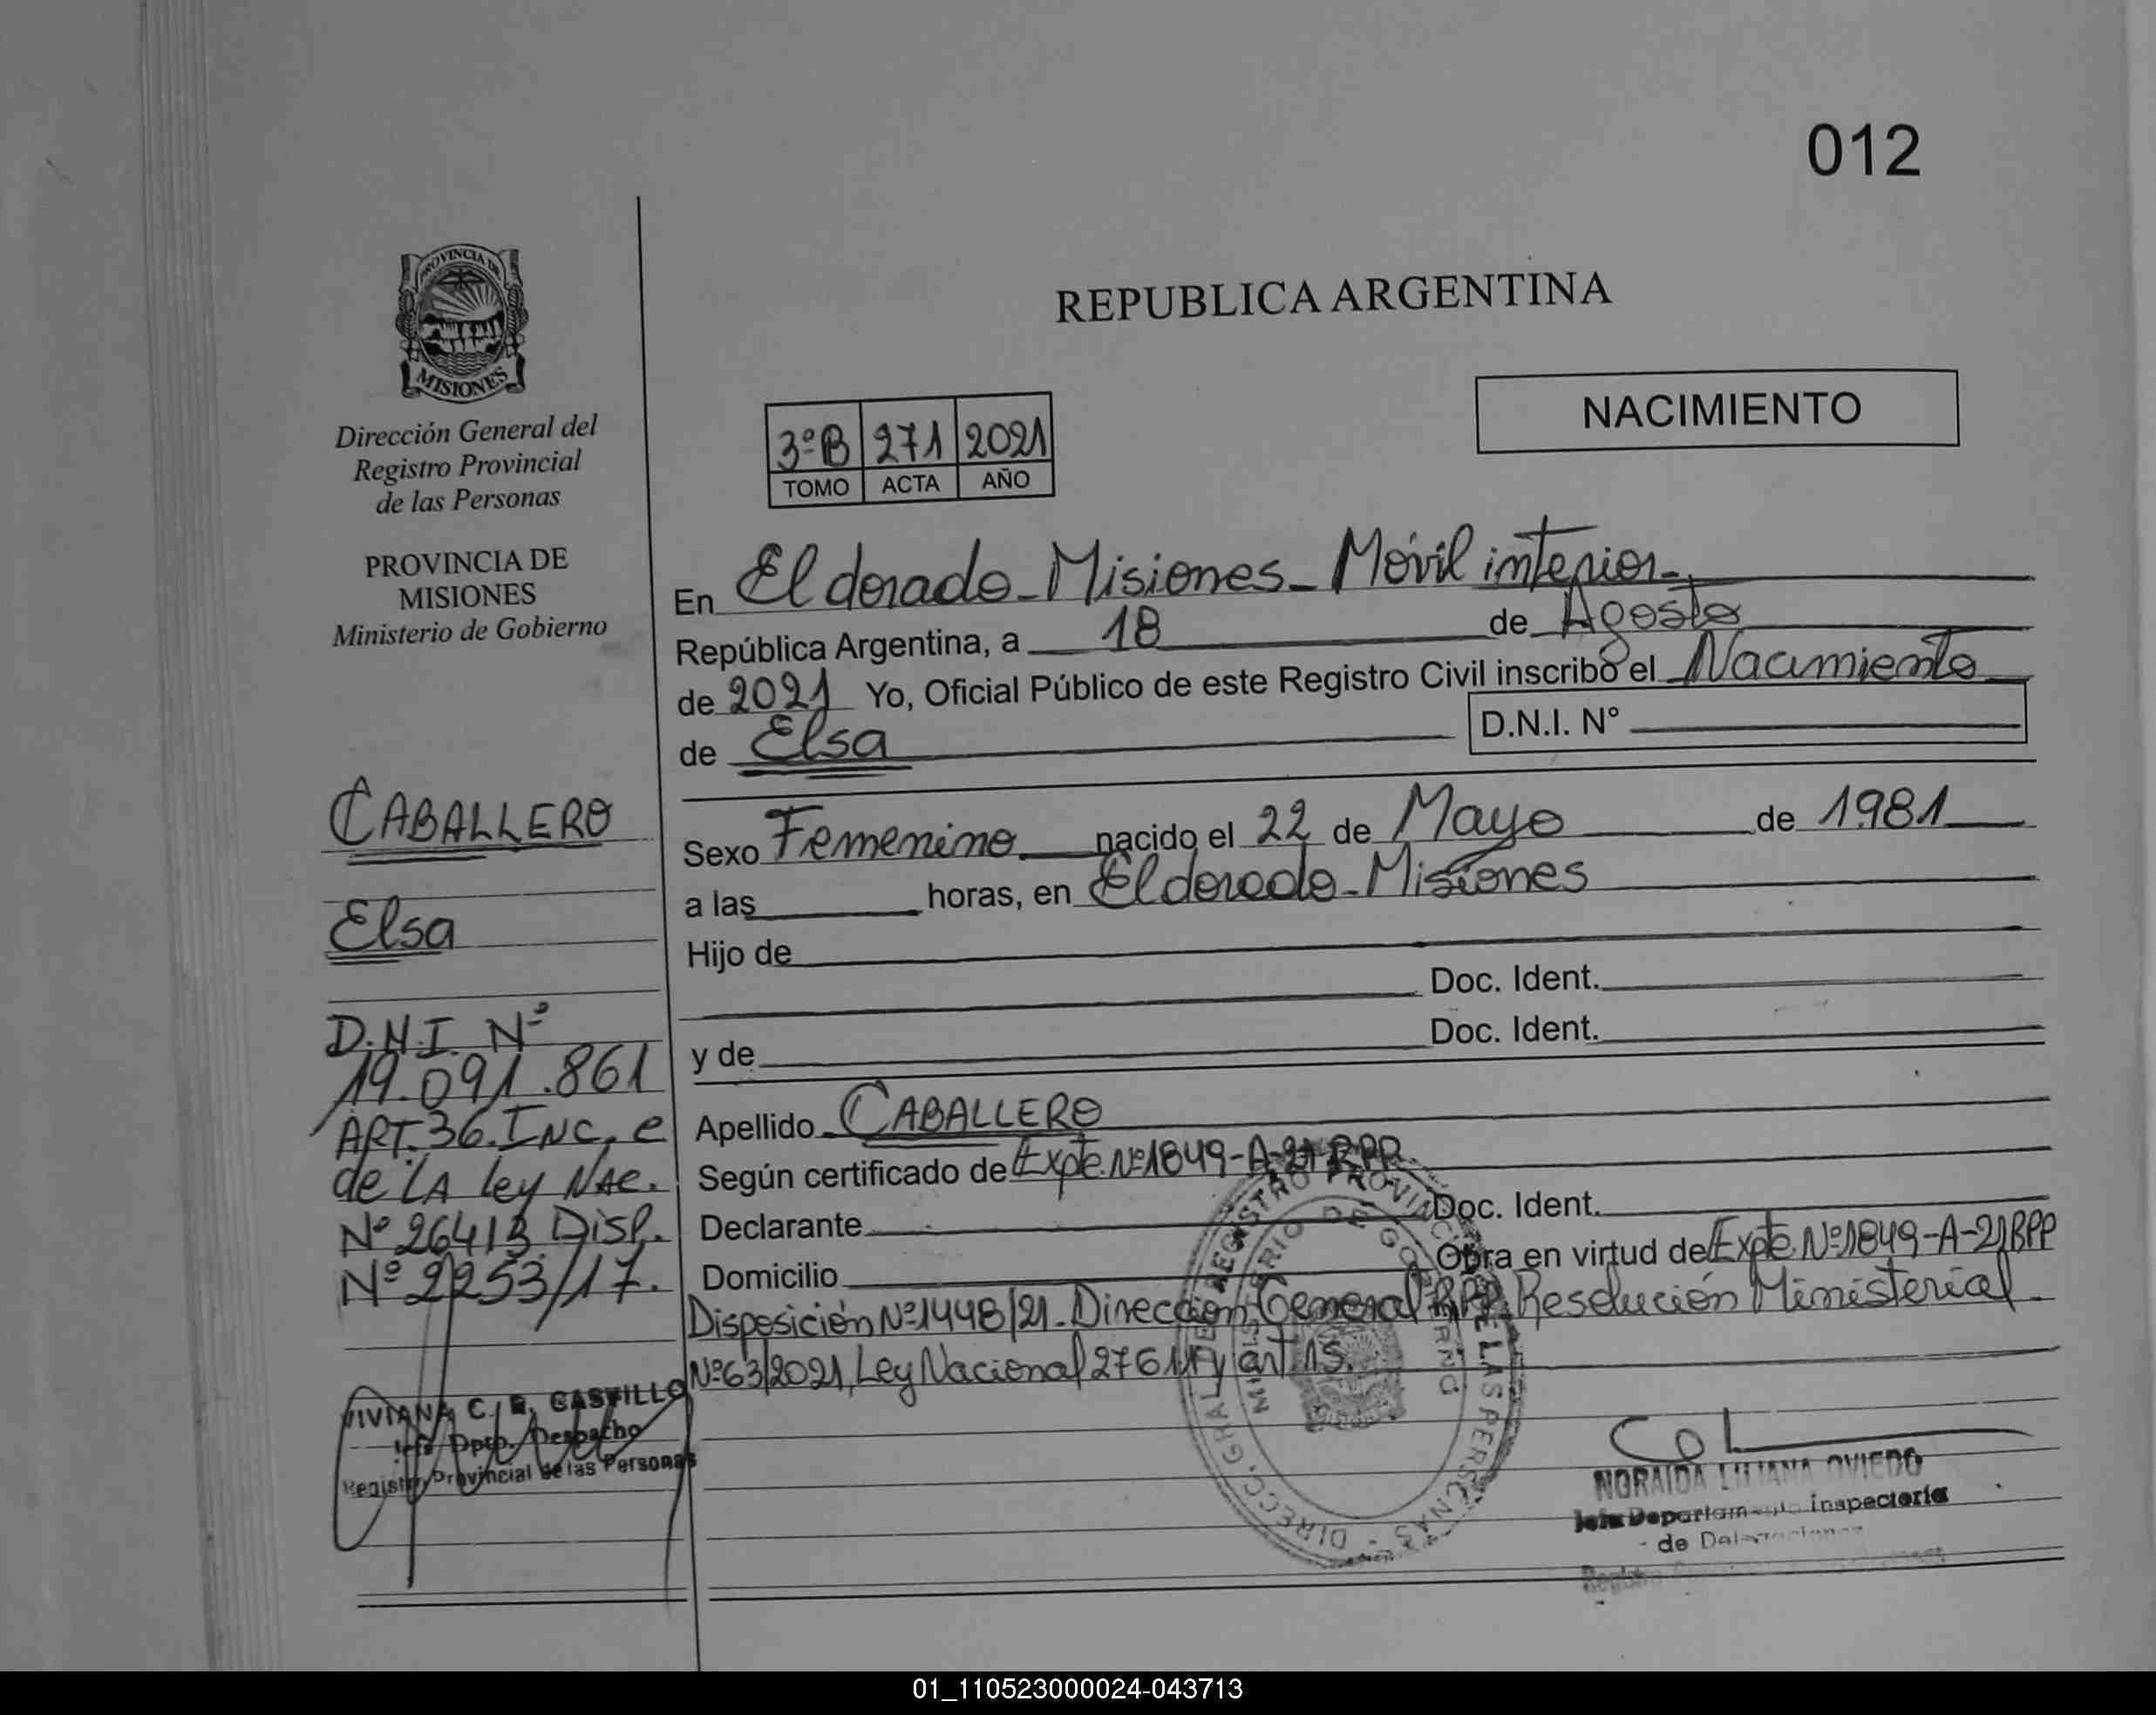 012
PROVINCIA DE
MISIONES
Dirección General del
Registro Provincial
de las Personas
PROVINCIA DE
MISIONES
Ministerio de Gobierno
CABALLERO
Elsa
D.N.I. Nº
19.091.861
ART.36.INC. e
de LA Ley Nac.
Nº 26413 Disp.
Nº 2253/17.
VIVIANA C. R. CASTILLO
Jefe Dpto. Despacho
Registro Provincial de las Personas
REPUBLICA ARGENTINA
NACIMIENTO
3ºB 271 2021
TOMO ACTA AÑO
En Eldorado - Misiones - Móvil interior -
República Argentina, a 18 de Agosto
de 2021 Yo, Oficial Público de este Registro Civil inscribo el Nacimiento
de Elsa D.N.I. N°
Sexo Femenino nacido el 22 de Mayo de 1981
a las horas, en Eldorado - Misiones
Hijo de
Doc. Ident.
y de Doc. Ident.
Apellido CABALLERO
Según certificado de Expte Nº1849-A-21 RPP.
Declarante Doc. Ident.
Domicilio Obra en virtud de Expte Nº1849-A-21 RPP
Disposición Nº1448/21 - Direccion General RPP, Resolución Ministerial
Nº63/2021, Ley Nacional y art. 15.
DIRECC. GRAL. DE REGISTRO PROVINCIAL DE LAS PERSONAS
MINISTERIO DE GOBIERNO
NORAIDA LILIANA OVIEDO
Jefa Departamento Inspectoria
de
01_110523000024-043713